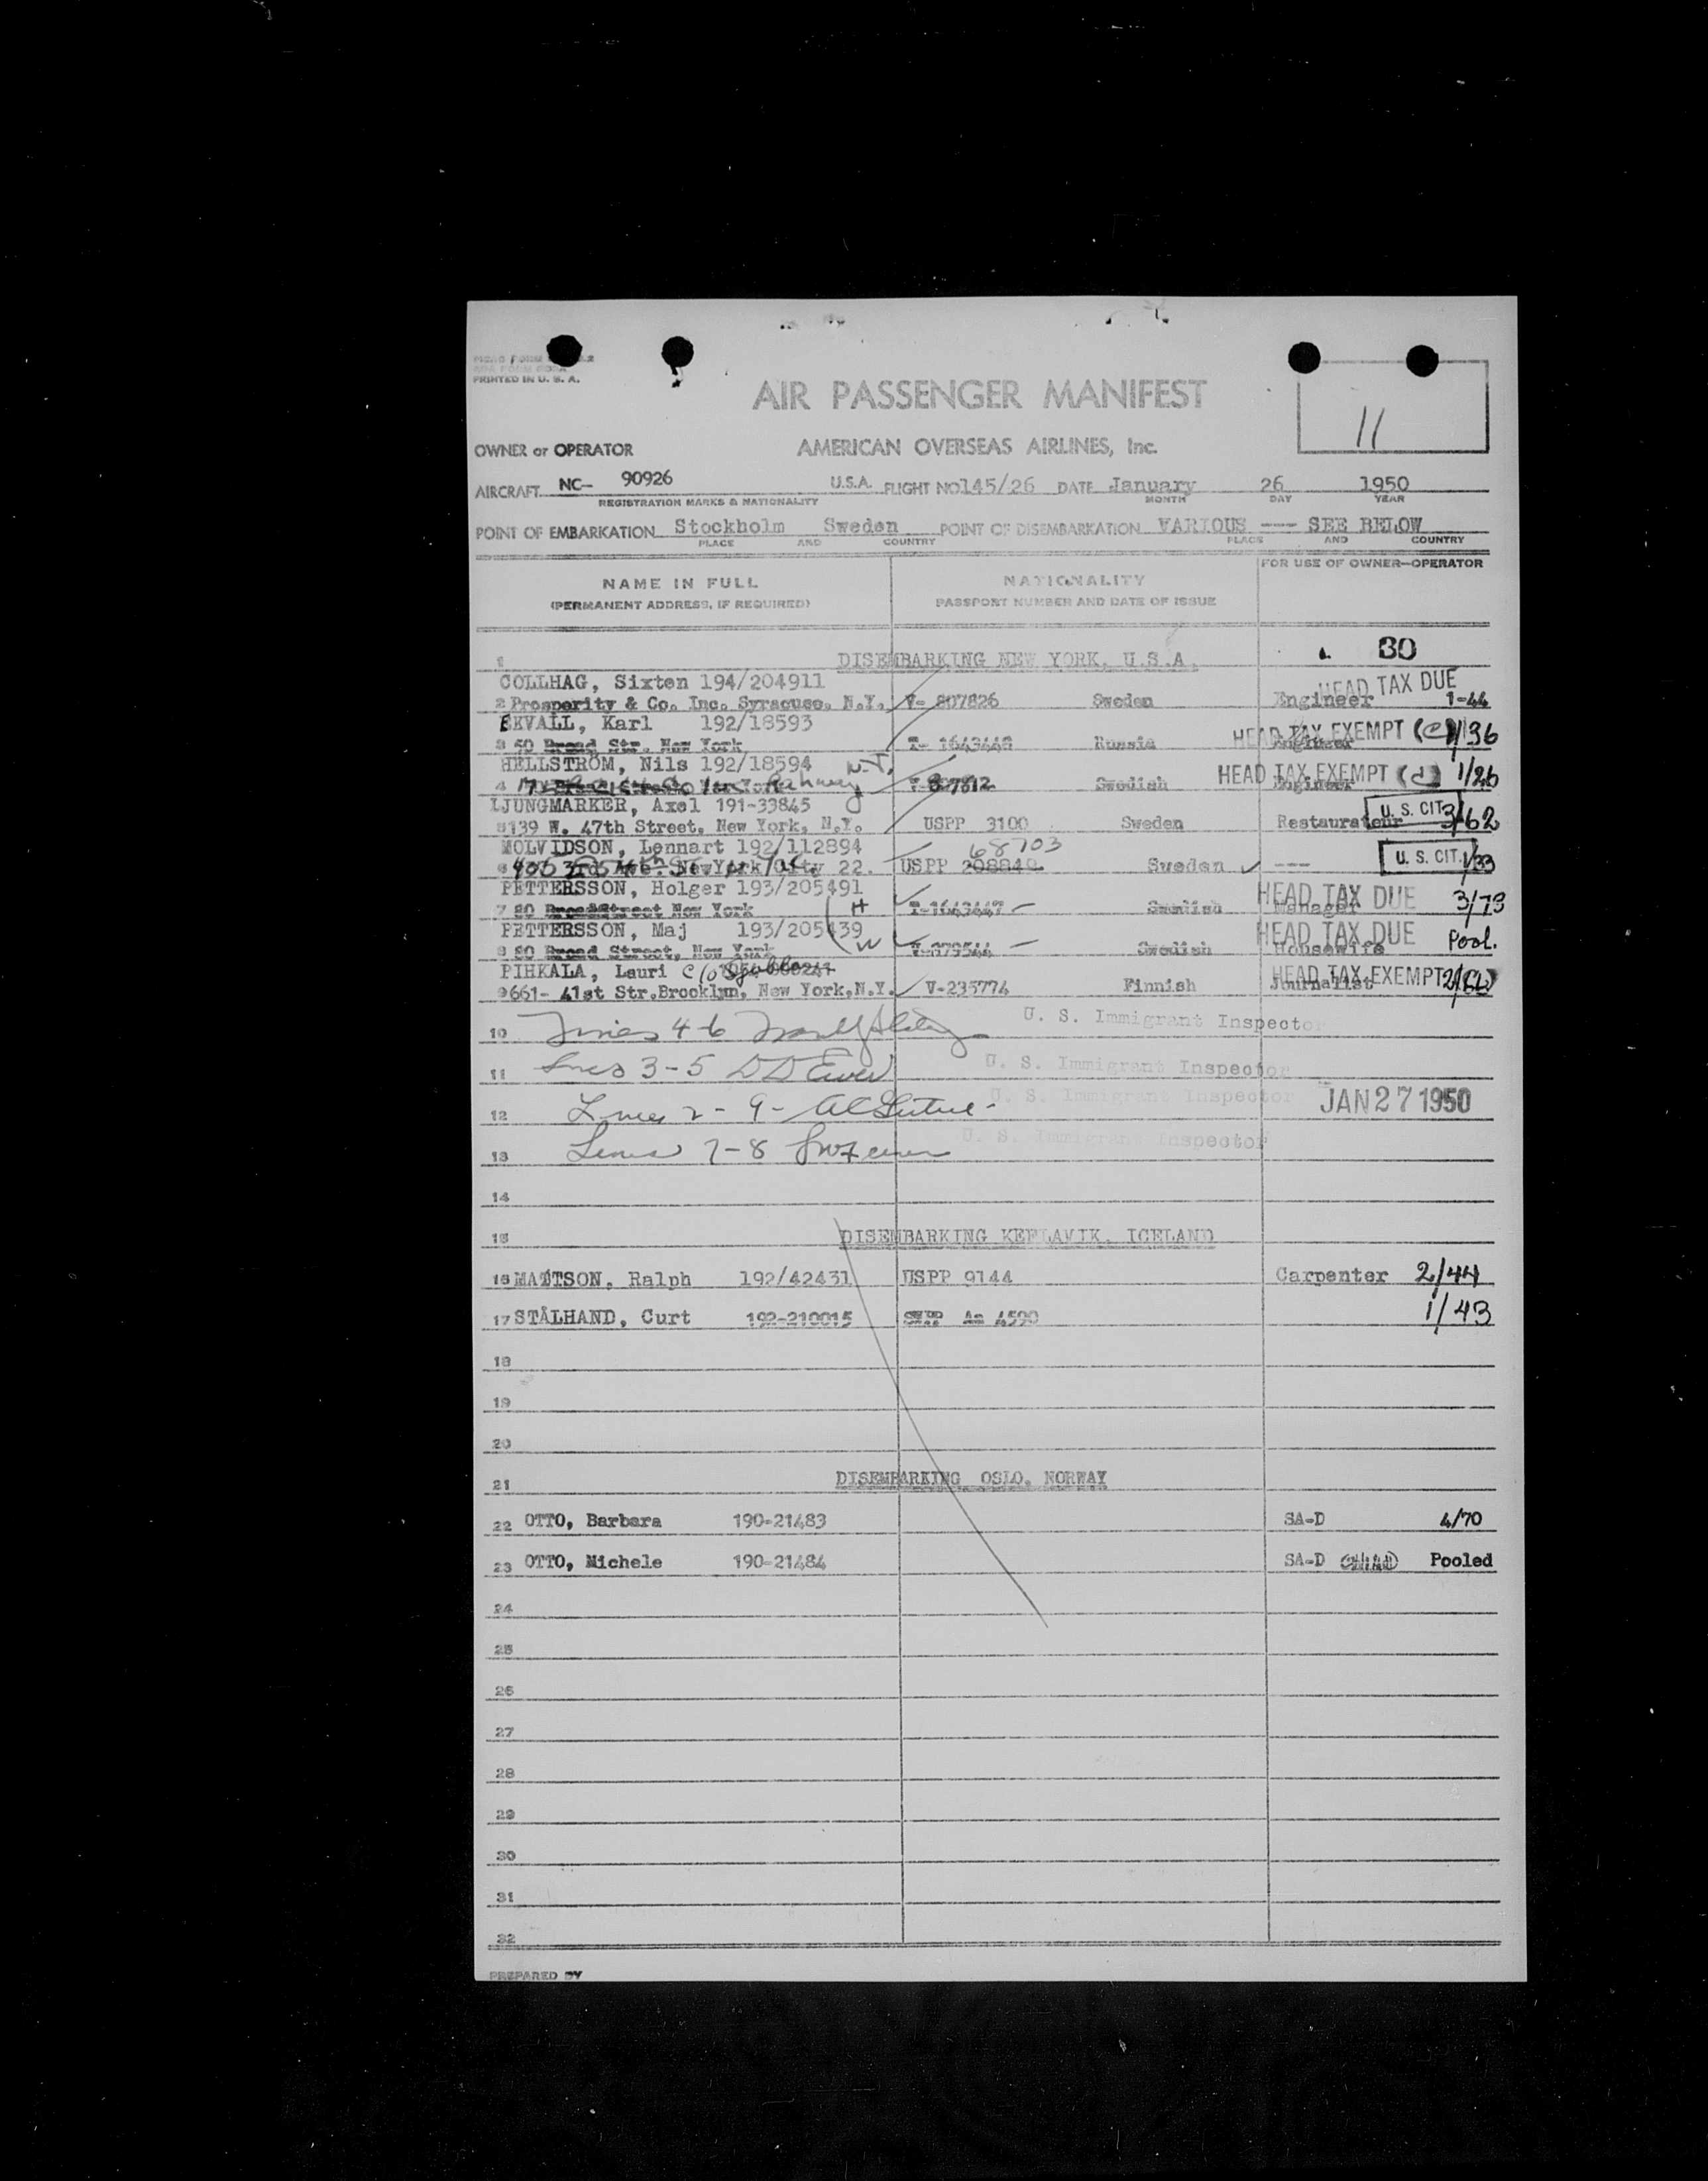 PRINTED IN U. S. A.
AIR PASSENGER MANIFEST
11
OWNER or OPERATOR AMERICAN OVERSEAS AIRLINES, Inc.
AIRCRAFT NC- 90926 U.S.A. FLIGHT NO 145/26 DATE January 26 1950
REGISTRATION MARKS & NATIONALITY MONTH DAY YEAR
POINT OF EMBARKATION Stockholm Sweden POINT OF DISEMBARKATION VARIOUS --- SEE BELOW
PLACE AND COUNTRY PLACE AND COUNTRY
NAME IN FULL NATIONALITY FOR USE OF OWNER-OPERATOR
(PERMANENT ADDRESS, IF REQUIRED) PASSPORT NUMBER AND DATE OF ISSUE
1 DISEMBARKING NEW YORK, U.S.A. 30
COLLHAG, Sixten 194/204911 HEAD TAX DUE
2 Prosperity & Co. Inc. Syracuse, N.Y. V- 807826 Sweden Engineer 1-44
EKVALL, Karl 192/18593 HEAD TAX EXEMPT (C) 1/36
3 50 Broad Str. New York T- 1643448 Russia Engineer
HELLSTRÖM, Nils 192/18594 N.J. HEAD TAX EXEMPT (d) 1/26
4 Rahway Swedish Engineer
LJUNGMARKER, Axel 191-33845 U. S. CIT.
5 139 W. 47th Street, New York, N.Y. USPP 3100 Sweden Restaurateur 3/62
MOLVIDSON, Lennart 192/112894 68703 U. S. CIT.
6 New York City 22. USPP 208840 Sweden --- 1/33
PETTERSSON, Holger 193/205491 HEAD TAX DUE 3/73
7 80 Broad Street New York H T-1643447 - Swedish Manager
PETTERSSON, Maj 193/205439 HEAD TAX DUE Pool.
8 80 Broad Street, New York W V-879544 - Swedish Housewife
PIHKALA, Lauri c/o HEAD TAX EXEMPT
9 661- 41st Str. Brooklyn, New York, N.Y. V-235774 Finnish Journalist
10 Lines 4-6 U. S. Immigrant Inspector
11 Lines 3-5 U. S. Immigrant Inspector
12 Lines 2-9- U. S. Immigrant Inspector JAN 27 1950
13 Lines 7-8 U. S. Immigrant Inspector
14
15 DISEMBARKING KEFLAVIK, ICELAND
16 MATTSON, Ralph 192/42431 USPP 9144 Carpenter 2/44
17 STÅLHAND, Curt 192-210015 SWPP Am 4590 1/43
18
19
20
21 DISEMBARKING OSLO, NORWAY
22 OTTO, Barbara 190-21483 SA-D 4/70
23 OTTO, Michele 190-21484 SA-D CHILD Pooled
24
25
26
27
28
29
30
31
32
PREPARED BY